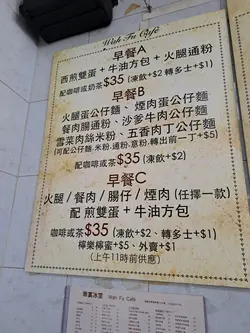 Wah Fu Cafe
早餐A
西煎雙蛋 + 牛油方包 + 火腿通粉
配咖啡或奶茶$35 (凍飲+$2 轉多士+$1)
早餐B
火腿蛋公仔麵、煙肉蛋公仔麵
餐肉腸通粉、沙爹牛肉公仔麵
雪菜肉絲米粉、五香肉丁公仔麵
(可配公仔麵.米粉.通粉.意粉.轉出前一丁+$5)
配咖啡或茶$35 (凍飲+$2)
早餐C
火腿 / 餐肉 / 腸仔 / 煙肉 (任擇一款)
配 煎雙蛋 + 牛油方包
咖啡或茶$35 (凍飲+$2、轉多士+$1)
檸樂檸蜜+$5、外賣+$1
(上午11時前供應)
華富冰室 Wah Fu Cafe